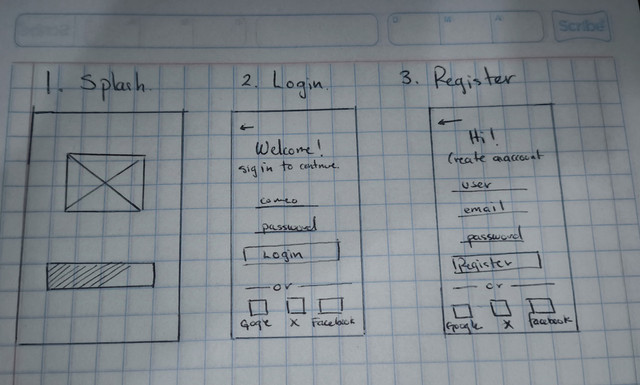 Scribe
1. Splash.
2. Login.
3. Register
←
Welcome!
sig in to continue
correo
password
Login
or
Google X Facebook
←
Hi!
Create an account
user
email
password
Register
or
Google X Facebook